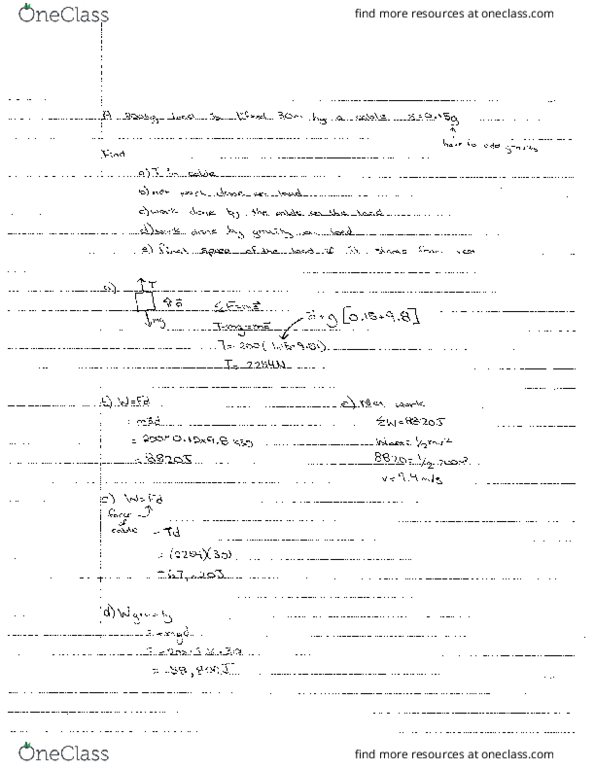 OneClass find more resources at oneclass.com
A 200kg load is lifted 30m by a cable a=0.15g
have to add gravity
Find
a) T in cable
b) net work done on load
c) work done by the cable on the load
d) work done by gravity on load
e) final speed of the load if it starts from rest
a)
T
a
mg
ΣF=ma
T-mg=ma
a+g [0.15+9.8]
T= 200(1.15×9.81)
T= 2254N
b) W=Fd
= mad
= 200×0.15×9.8
= 8820J
e) Net work
ΣW=8820J
=1/2mv²
8820=1/2 200v²
v=9.4m/s
c) W=Fd
force of cable
= Td
= (2254)(30)
d) W gravity
= -mgd
find more resources at oneclass.com
OneClass